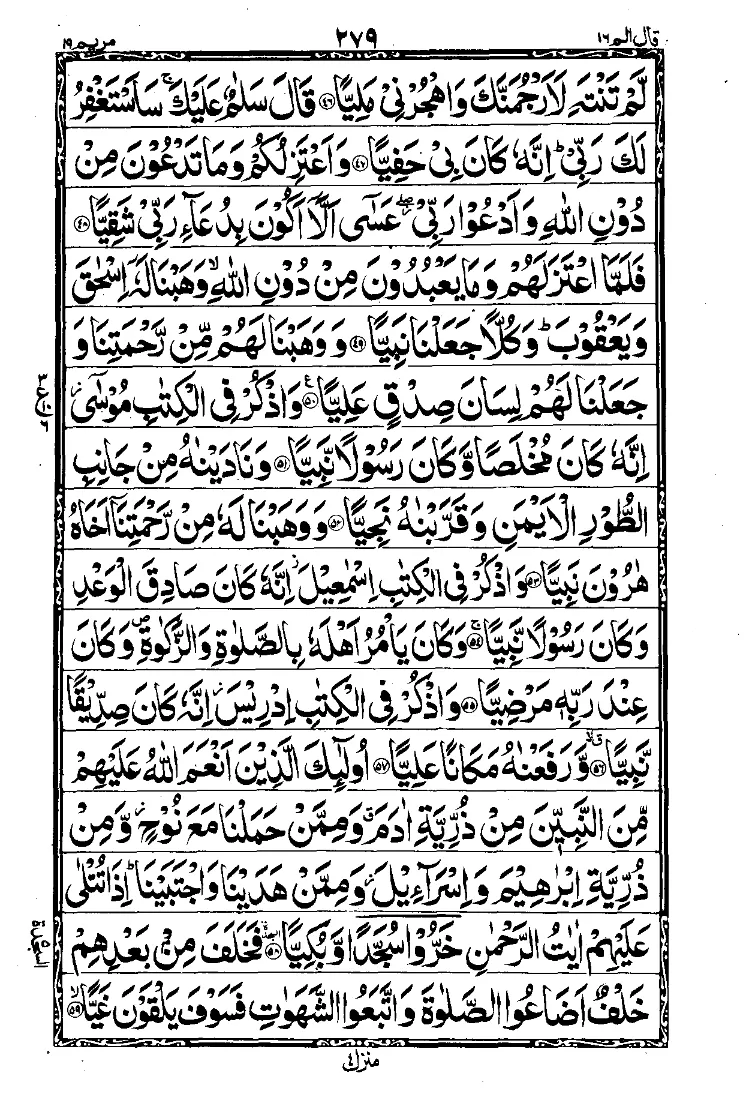 قال الم ١٦ ٢٧٩ مريم ١٩
لَّمْ تَنْتَهِ لَاَرْجُمَنَّكَ وَاهْجُرْنِیْ مَلِیًّا ﴿٤٦﴾ قَالَ سَلٰمٌ عَلَیْكَ ۚ سَاَسْتَغْفِرُ
لَكَ رَبِّیْ ؕ اِنَّهٗ كَانَ بِیْ حَفِیًّا ﴿٤٧﴾ وَاَعْتَزِلُكُمْ وَمَا تَدْعُوْنَ مِنْ
دُوْنِ اللّٰهِ وَاَدْعُوْا رَبِّیْ ۖ عَسٰۤی اَلَّاۤ اَكُوْنَ بِدُعَآءِ رَبِّیْ شَقِیًّا ﴿٤٨﴾
فَلَمَّا اعْتَزَلَهُمْ وَمَا یَعْبُدُوْنَ مِنْ دُوْنِ اللّٰهِ ۙ وَهَبْنَا لَهٗۤ اِسْحٰقَ
وَیَعْقُوْبَ ؕ وَكُلًّا جَعَلْنَا نَبِیًّا ﴿٤٩﴾ وَوَهَبْنَا لَهُمْ مِّنْ رَّحْمَتِنَا وَ
جَعَلْنَا لَهُمْ لِسَانَ صِدْقٍ عَلِیًّا ﴿٥٠﴾ وَاذْكُرْ فِی الْكِتٰبِ مُوْسٰۤی ؗ
اِنَّهٗ كَانَ مُخْلَصًا وَّكَانَ رَسُوْلًا نَّبِیًّا ﴿٥١﴾ وَنَادَیْنٰهُ مِنْ جَانِبِ
الطُّوْرِ الْاَیْمَنِ وَقَرَّبْنٰهُ نَجِیًّا ﴿٥٢﴾ وَوَهَبْنَا لَهٗ مِنْ رَّحْمَتِنَاۤ اَخَاهُ
هٰرُوْنَ نَبِیًّا ﴿٥٣﴾ وَاذْكُرْ فِی الْكِتٰبِ اِسْمٰعِیْلَ ؗ اِنَّهٗ كَانَ صَادِقَ الْوَعْدِ
وَكَانَ رَسُوْلًا نَّبِیًّا ﴿٥٤﴾ ۚ وَكَانَ یَاْمُرُ اَهْلَهٗ بِالصَّلٰوةِ وَالزَّكٰوةِ ۪ وَكَانَ
عِنْدَ رَبِّهٖ مَرْضِیًّا ﴿٥٥﴾ وَاذْكُرْ فِی الْكِتٰبِ اِدْرِیْسَ ؗ اِنَّهٗ كَانَ صِدِّیْقًا
نَّبِیًّا ﴿٥٦﴾ وَّرَفَعْنٰهُ مَكَانًا عَلِیًّا ﴿٥٧﴾ اُولٰٓئِكَ الَّذِیْنَ اَنْعَمَ اللّٰهُ عَلَیْهِمْ
مِّنَ النَّبِیّٖنَ مِنْ ذُرِّیَّةِ اٰدَمَ ۗ وَمِمَّنْ حَمَلْنَا مَعَ نُوْحٍ ؗ وَّمِنْ
ذُرِّیَّةِ اِبْرٰهِیْمَ وَاِسْرَآءِیْلَ ؗ وَمِمَّنْ هَدَیْنَا وَاجْتَبَیْنَا ؕ اِذَا تُتْلٰی
عَلَیْهِمْ اٰیٰتُ الرَّحْمٰنِ خَرُّوْا سُجَّدًا وَّبُكِیًّا ﴿٥٨﴾ فَخَلَفَ مِنْۢ بَعْدِهِمْ
خَلْفٌ اَضَاعُوا الصَّلٰوةَ وَاتَّبَعُوا الشَّهَوٰتِ فَسَوْفَ یَلْقَوْنَ غَیًّا ۙ﴿٥٩﴾
السجدة
منزل ٤